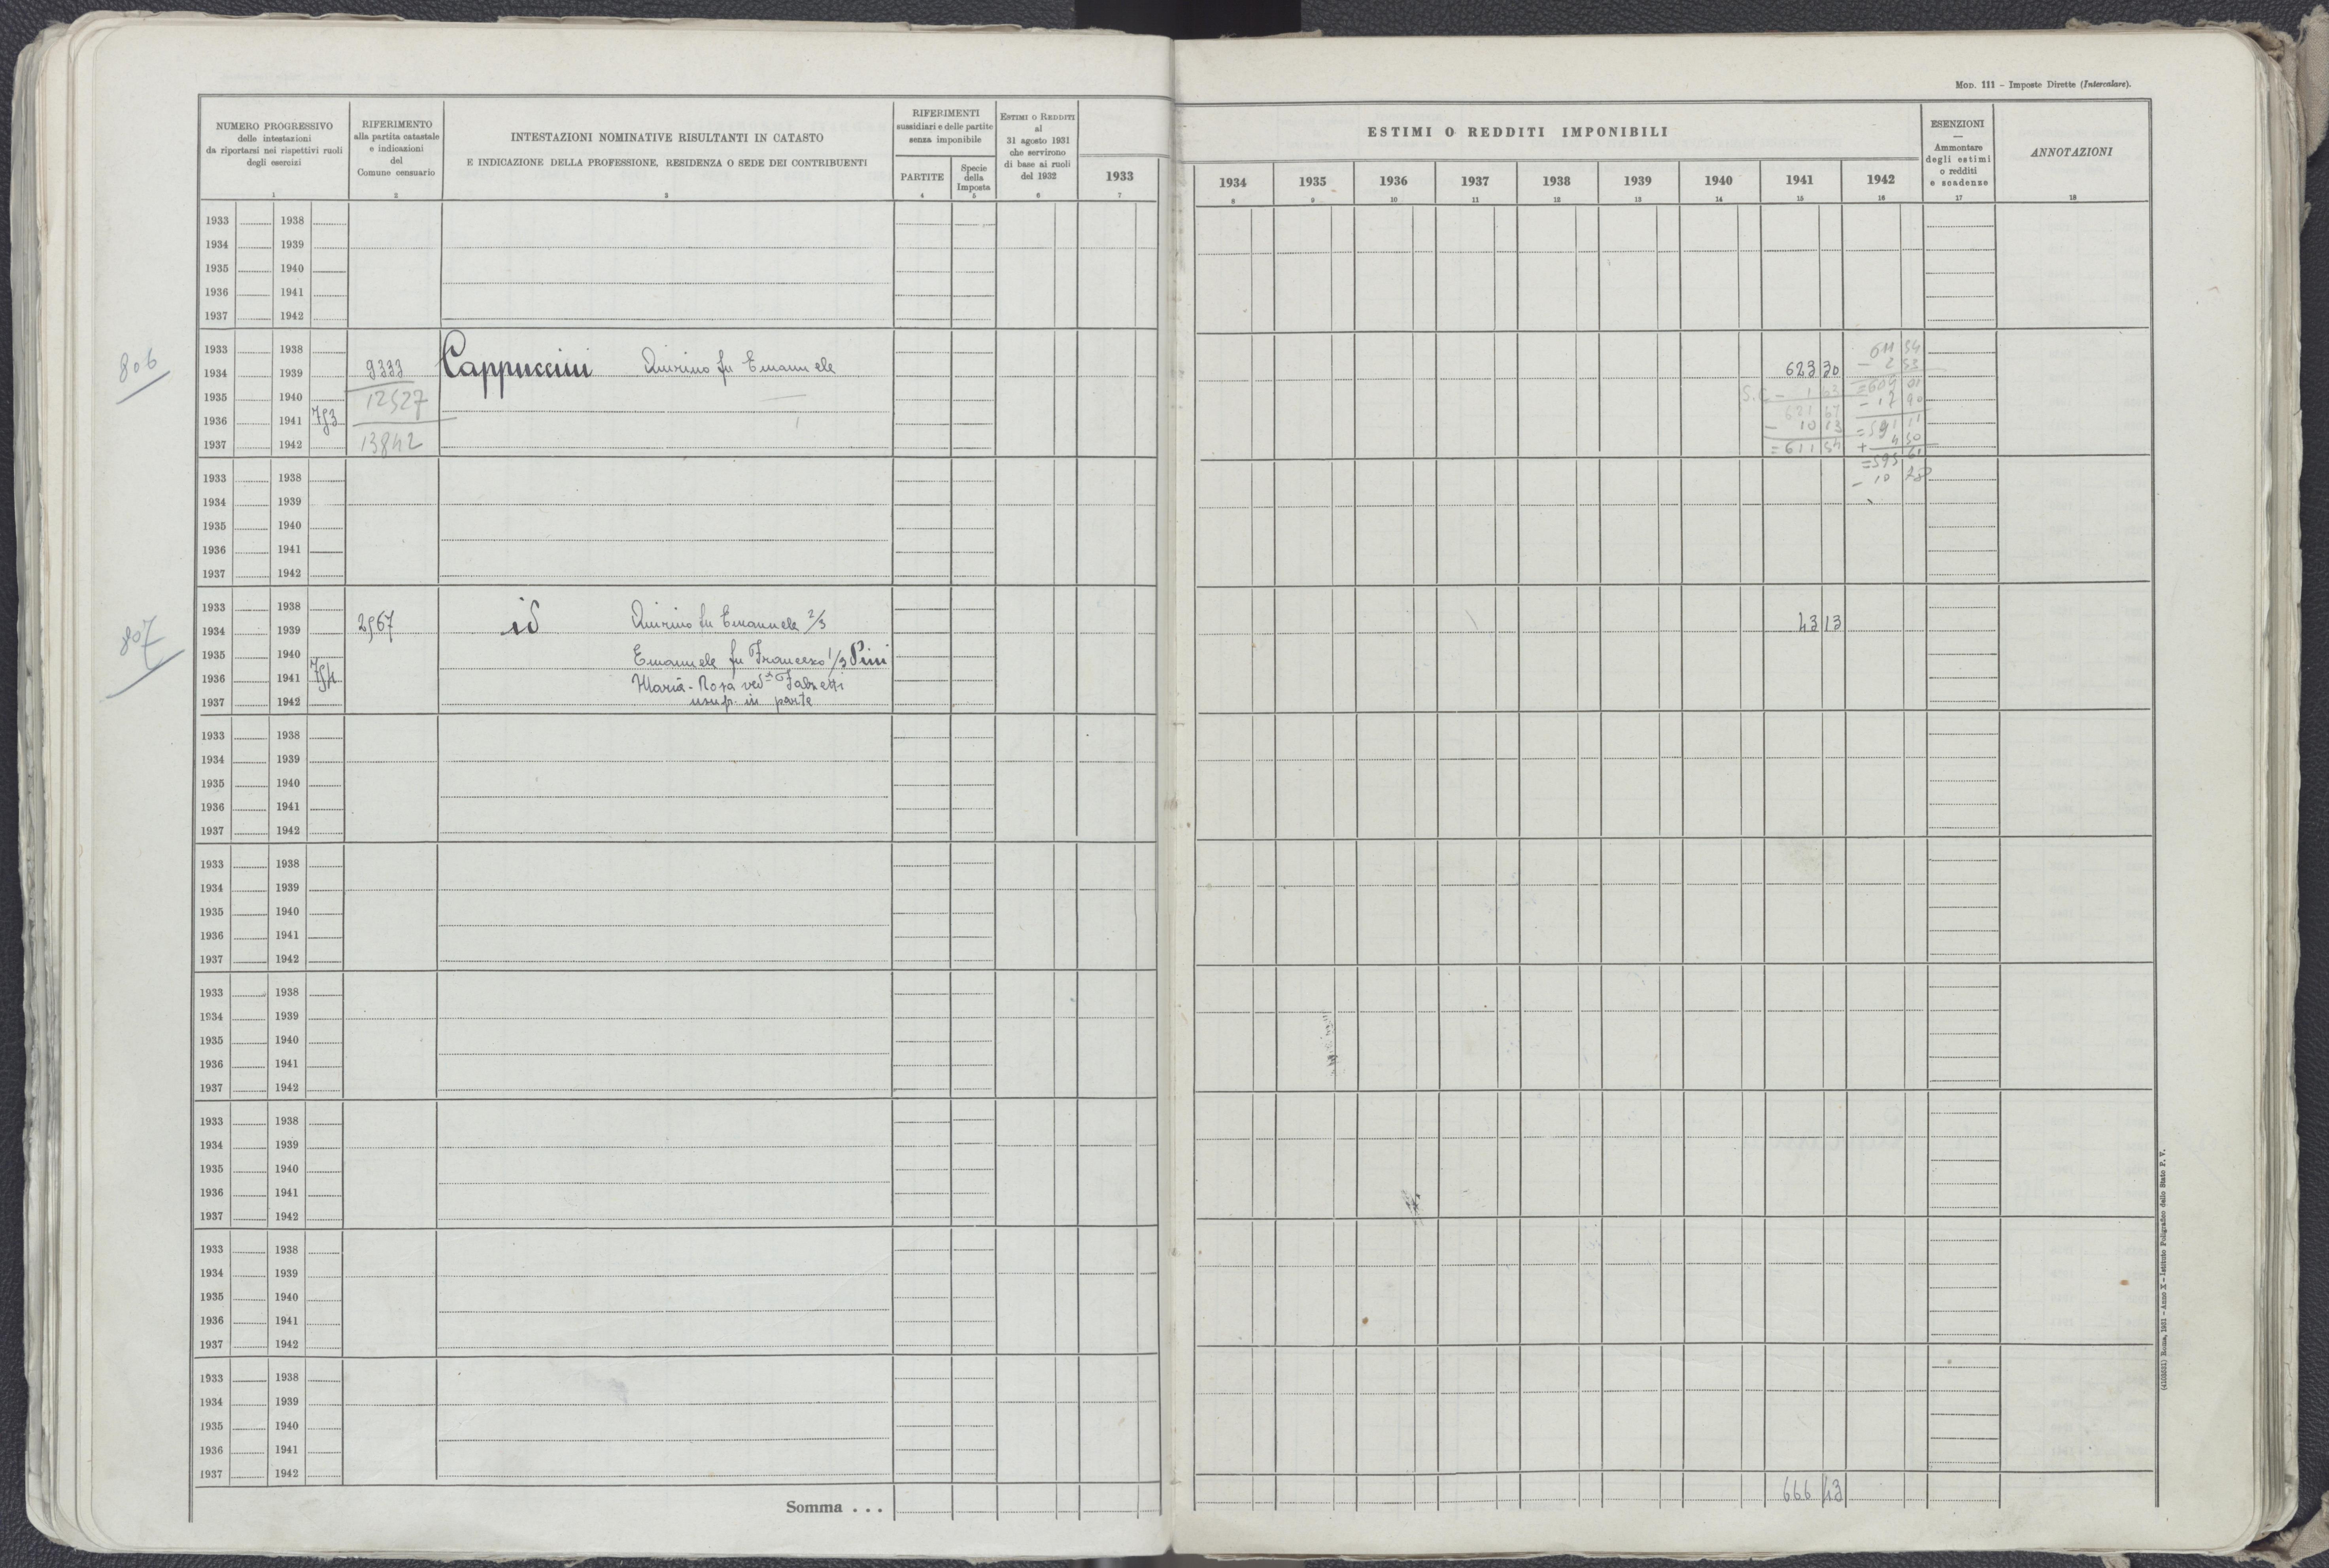 MOD. 111 – Imposte Dirette (Intercalare).
NUMERO PROGRESSIVO
delle intestazioni
da riportarsi nei rispettivi ruoli
degli esercizi
1
RIFERIMENTO
alla partita catastale
e indicazioni
del
Comune censuario
2
INTESTAZIONI NOMINATIVE RISULTANTI IN CATASTO
E INDICAZIONE DELLA PROFESSIONE, RESIDENZA O SEDE DEI CONTRIBUENTI
3
RIFERIMENTI
sussidiari e delle partite
senza imponibile
PARTITE
4
Specie
della
Imposta
5
ESTIMI O REDDITI
al
31 agosto 1931
che servirono
di base ai ruoli
del 1932
6
1933
7
ESTIMI O REDDITI IMPONIBILI
1934 1935 1936 1937 1938 1939 1940 1941 1942
8 9 10 11 12 13 14 15 16
ESENZIONI
—
Ammontare
degli estimi
o redditi
e scadenze
17
ANNOTAZIONI
18
1933 1938
1934 1939
1935 1940
1936 1941
1937 1942
806
1933 1938 611 54
1934 1939 9333 Cappuccini Quirino fu Emanuele 623 30 – 2 53
1935 1940 12527 S.C – 1 63 =609 01
621 67 – 17 90
1936 1941 753 – 10 13 =591 11
1937 1942 13842 =611 54 + 4 50
=595 61
1933 1938 – 10 28
1934 1939
1935 1940
1936 1941
1937 1942
807
1933 1938
1934 1939 2567 id Quirino fu Emanuele 2/3 43 13
1935 1940 Emanuele fu Francesco 1/3 Pini
1936 1941 754 Maria-Rosa ved.a Fabretti
1937 1942 usuf. in parte
1933 1938
1934 1939
1935 1940
1936 1941
1937 1942
1933 1938
1934 1939
1935 1940
1936 1941
1937 1942
1933 1938
1934 1939
1935 1940
1936 1941
1937 1942
1933 1938
1934 1939
1935 1940
1936 1941
1937 1942
1933 1938
1934 1939
1935 1940
1936 1941
1937 1942
1933 1938
1934 1939
1935 1940
1936 1941
1937 1942
Somma . . . 666 43
(4103531) Roma, 1931 – Anno X – Istituto Poligrafico dello Stato P. V.